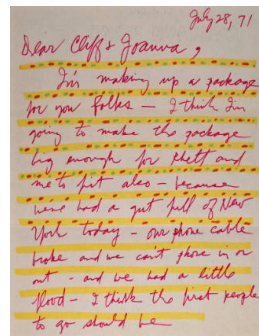 July 28, 71
Dear Cliff + Joanna,
I'm making up a package
for you folks — I think I'm
going to make the package
big enough for Rhett and
me to fit also — because
we've had a gut full of New
York today — our phone cable
broke and we can't phone in or
out — and we had a little
flood — I think the first people
to go should be